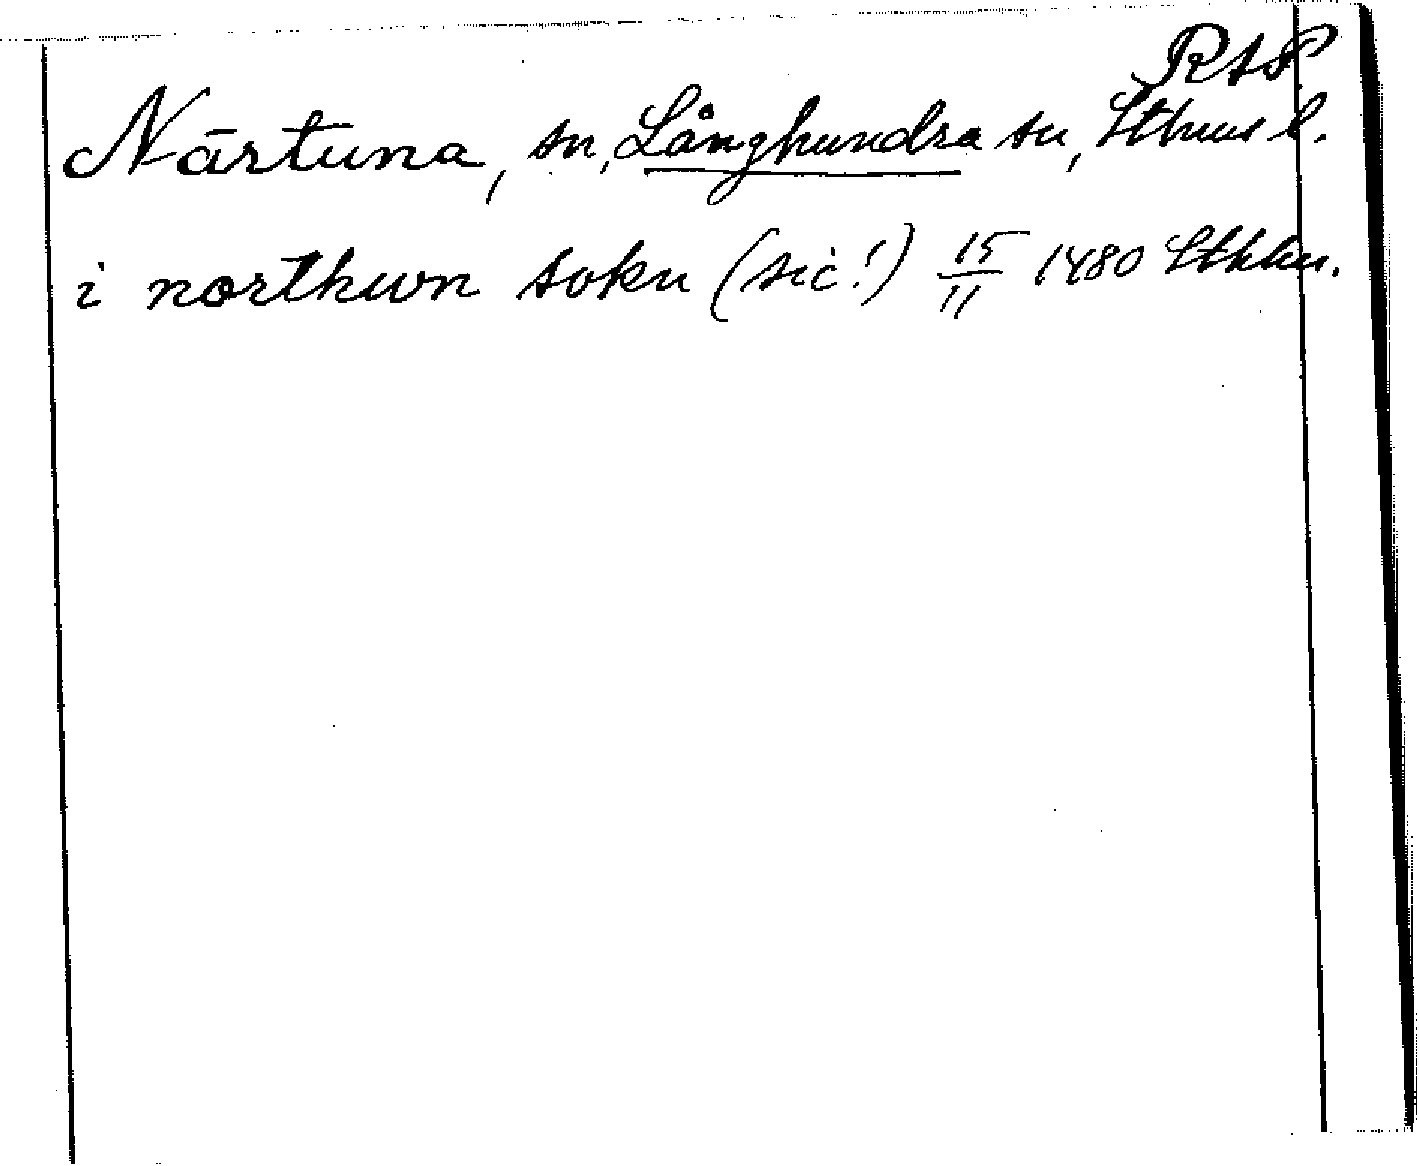 RAP
Närtuna, sn, Långhundra sn, Sthms l.
i northwn sokn (sic!) 15/11 1480 Sthlm.